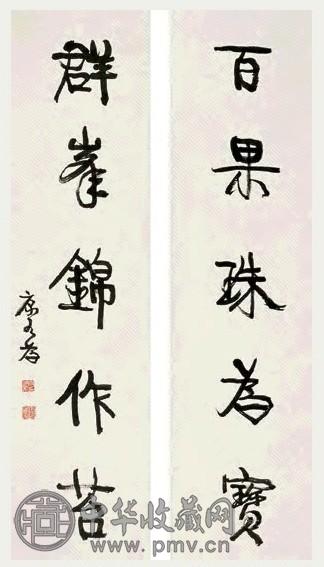 百果珠為寶
群峯錦作苔
康有為
中华收藏网
www.pmv.cn